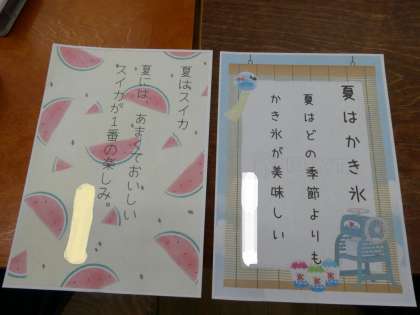 夏はスイカ
夏には、あまくておいしい
スイカが1番の楽しみ。
夏はかき氷
夏はどの季節よりも
かき氷が美味しい